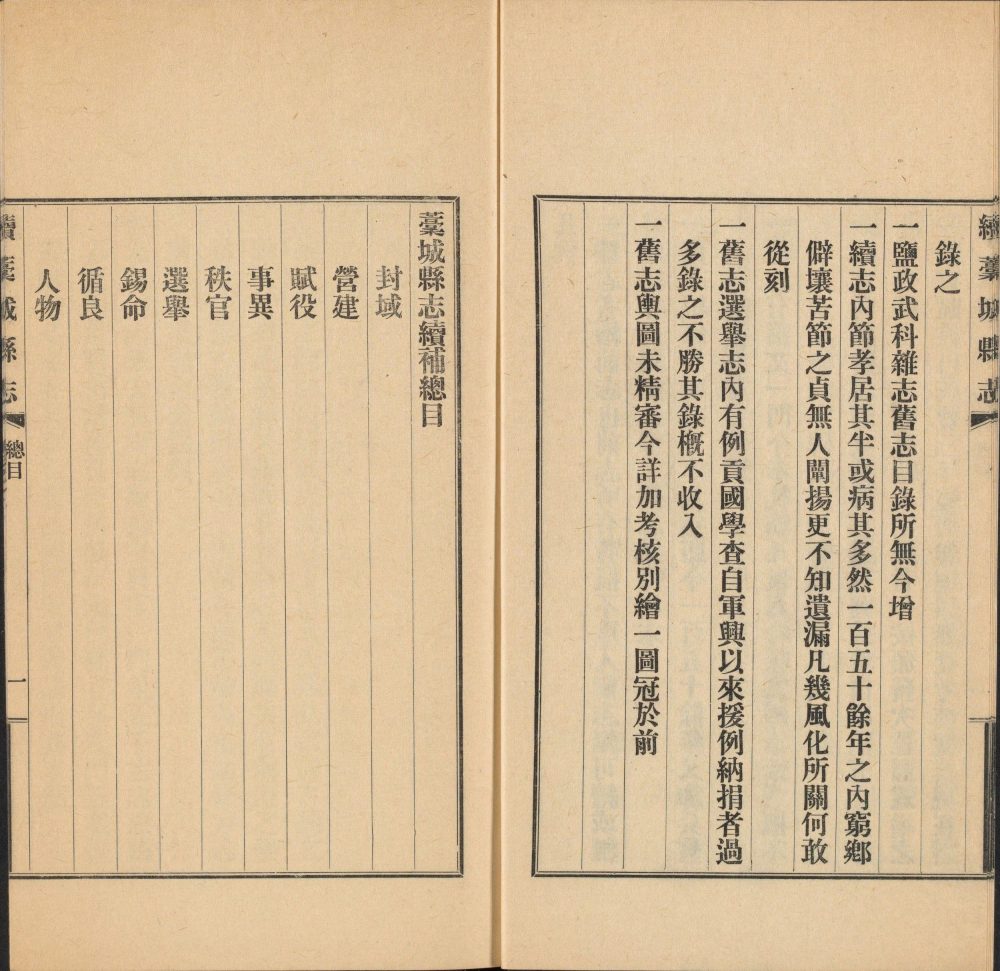 續藁城縣志
錄之
一鹽政武科雜志舊志目錄所無今增
一續志內節孝居其半或病其多然一百五十餘年之內窮鄉
僻壤苦節之貞無人闡揚更不知遺漏凡幾風化所關何敢
從刻
一舊志選舉志內有例貢國學查自軍興以來援例納捐者過
多錄之不勝其錄槪不收入
一舊志輿圖未精審今詳加考核別繪一圖冠於前
藁城縣志續補總目
封域
營建
賦役
事異
秩官
選舉
錫命
循良
人物
續藁城縣志 總目 一